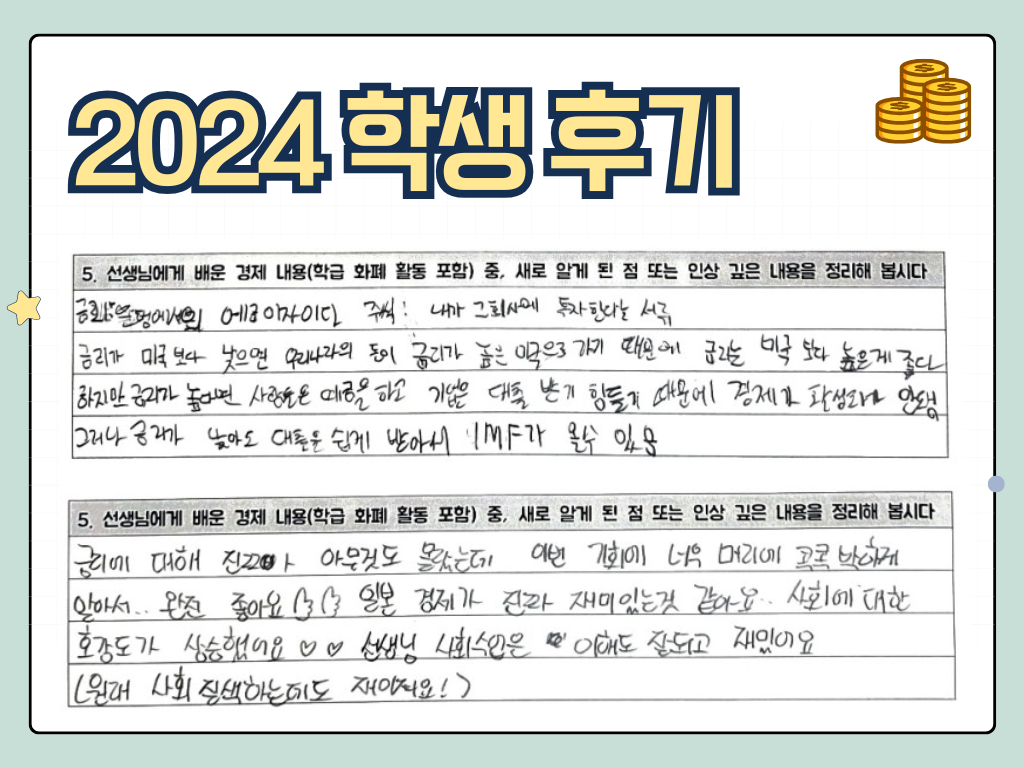 2024 학생 후기
5. 선생님에게 배운 경제 내용(학급 화폐 활동 포함) 중, 새로 알게 된 점 또는 인상 깊은 내용을 정리해 봅시다
이다 주식: 내가 그 회사에 투자한다는 서류
금리가 미국보다 낮으면 우리나라의 돈이 금리가 높은 미국으로 가기 때문에 금리는 미국 보다 높은게 좋다
하지만 금리가 높으면 사람들은 예금을 하고 기업은 대출 받기 힘들기 때문에 경제가 활성화가 안됨
그러나 금리가 낮아도 대출을 쉽게 받아서 IMF가 올수 있음
5. 선생님에게 배운 경제 내용(학급 화폐 활동 포함) 중, 새로 알게 된 점 또는 인상 깊은 내용을 정리해 봅시다
금리에 대해 진짜 아무것도 몰랐는데 이번 기회에 너무 머리에 콕콕 박하게
알아서.. 완전 좋아요 일본 경제가 진짜 재미있는것 같아요.. 사회에 대한
호감도가 상승했어요 ♡ ♡ 선생님 사회수업은 이해도 잘되고 재밌어요
(원래 사회 질색하는데도 재밌어요!)